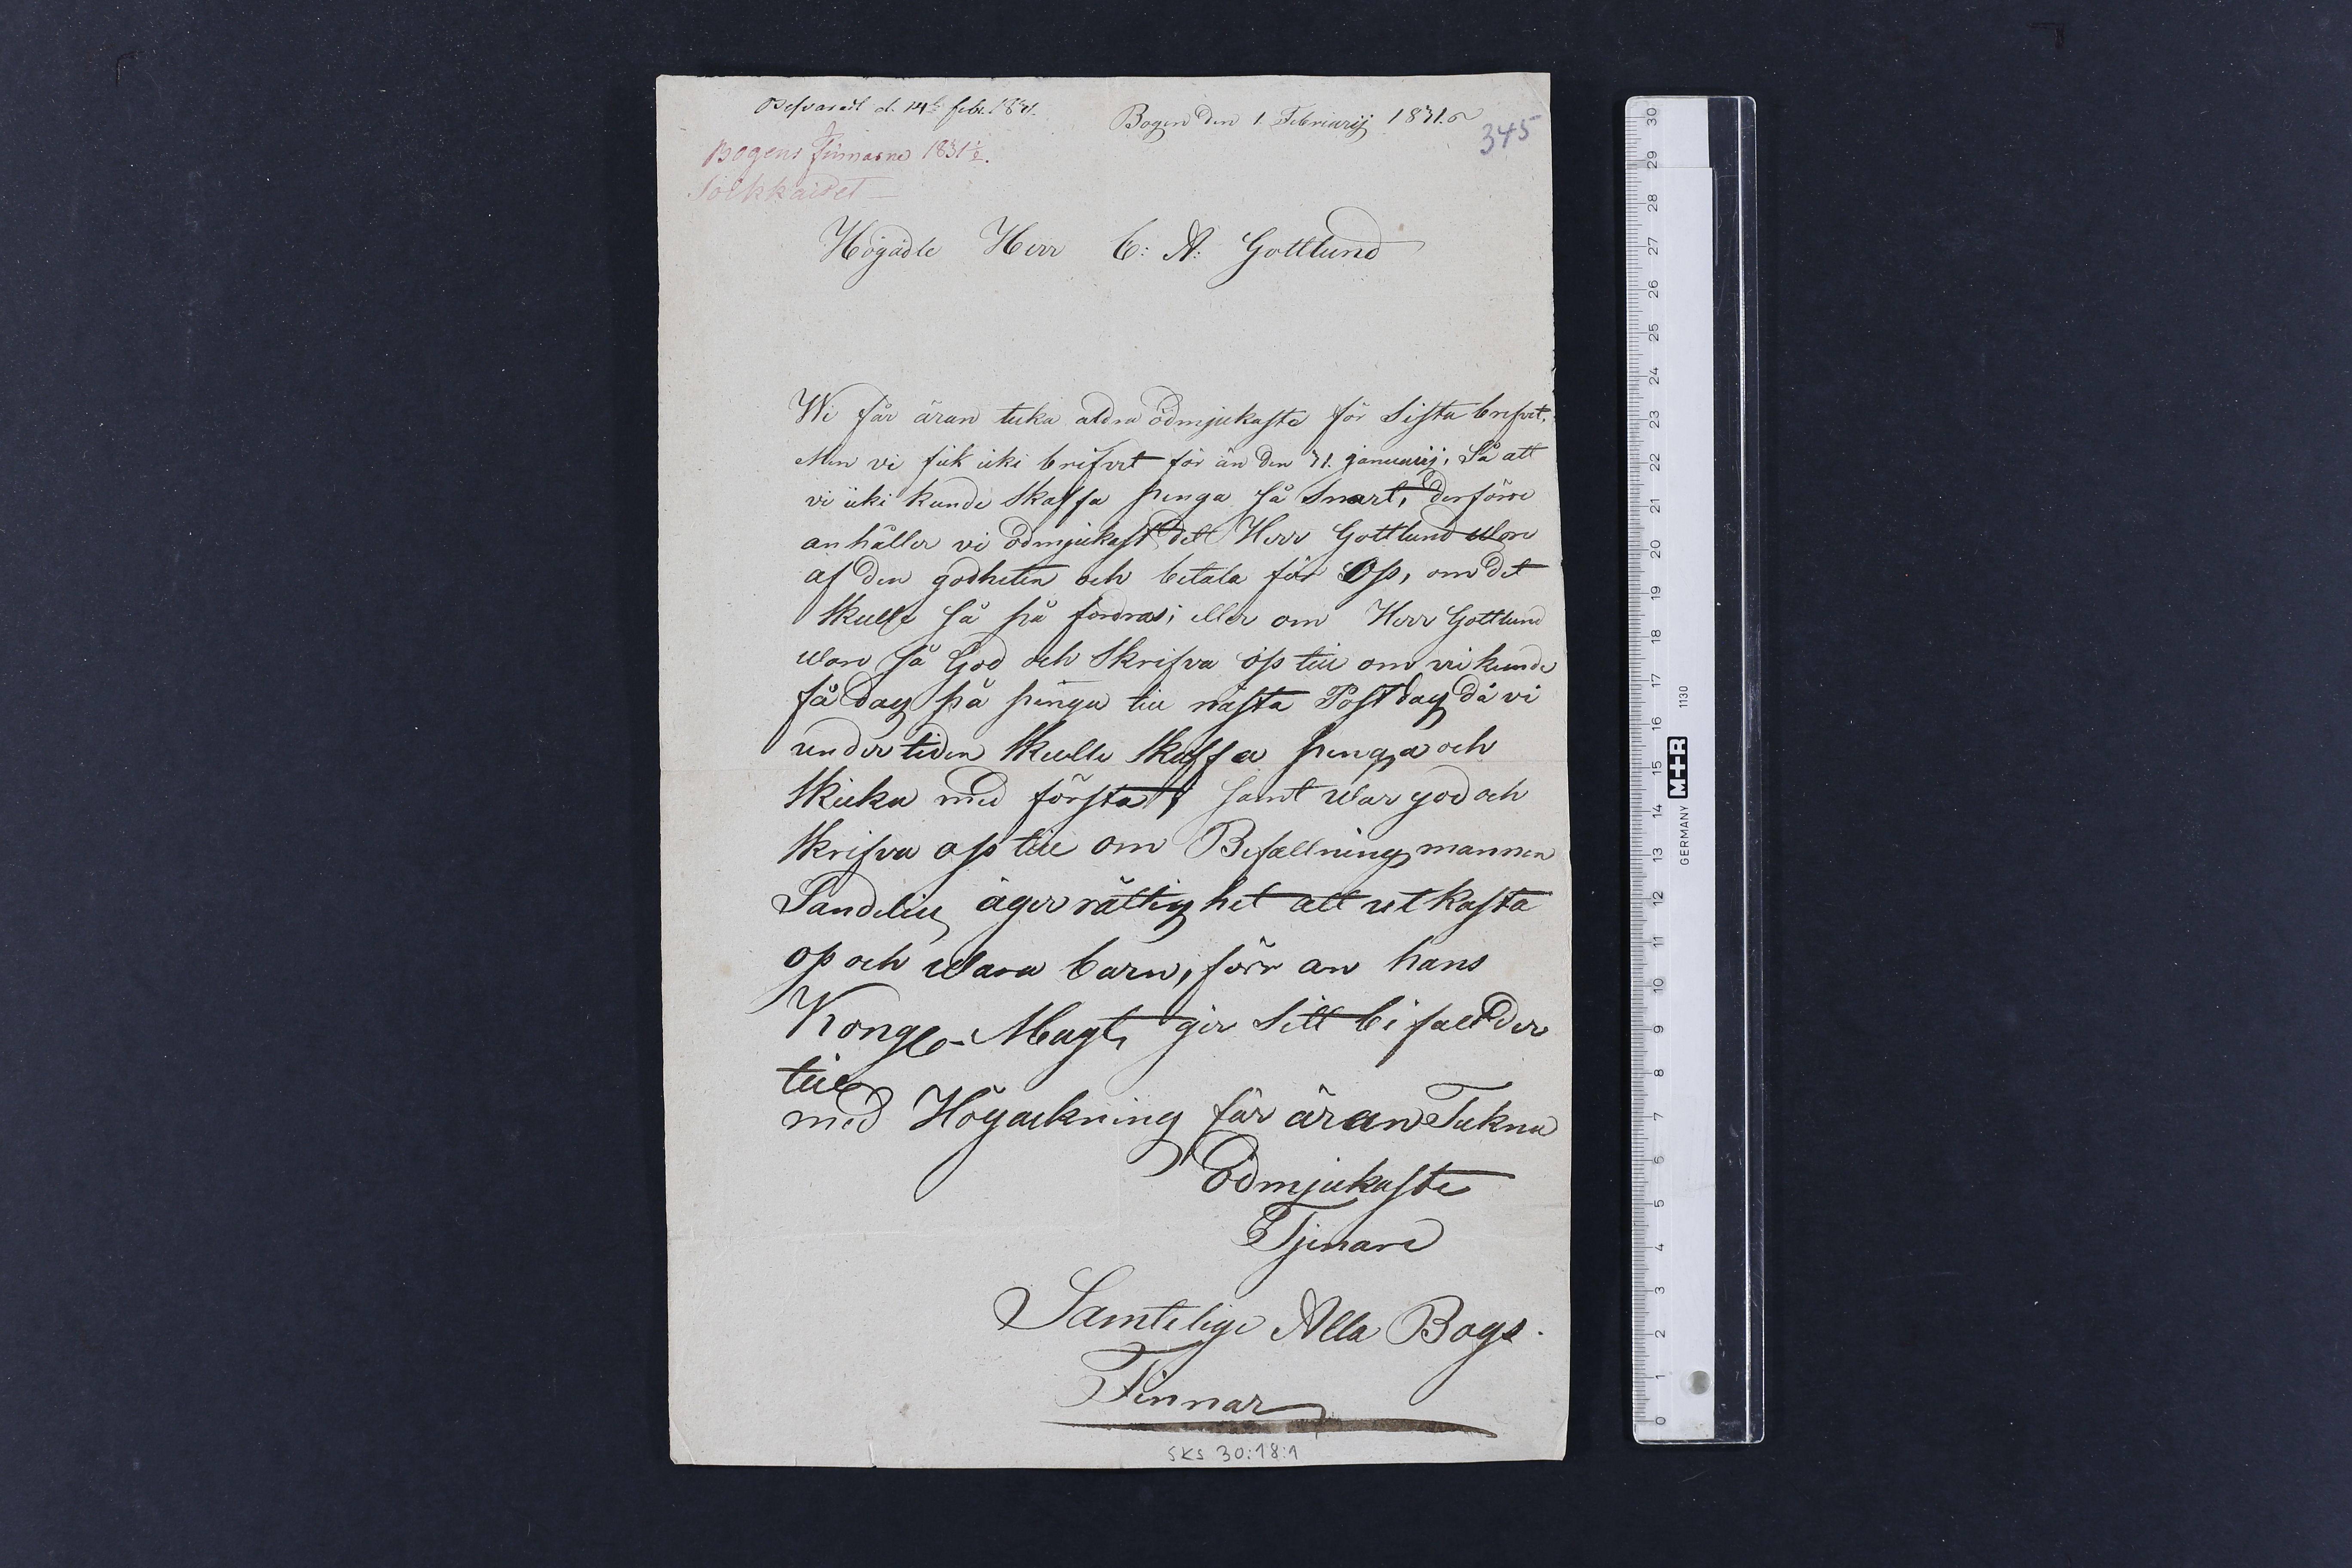 Besvarat d. 14de febr. 1831.
Bogen den 1. Februarij 1831.
345
Bogens finnarne 1831 1/2.
Högädle Herr C: A: Gottlund
Wi får äran tacka aldra ödmjukaste för sista brefvet,
Men vi fick icke brefvet för än den 31. januarij, Så att
vi icke kunde skaffa penga så snart, derföre
anhåller vi ödmjukast det Herr Gottlund wore
af den godheten och betala för Oss, om det
skulle så på fordras; eller om Herr Gottlund
wore så God och skrifva oss till om vi kunde
få dag på penga till nästa Postdag då vi
under tiden skulle skaffa penga och
skicka med första; samt war god och
skrifva oss till om Befallningsmannen
Sandelin äger rättighet att utkasta
oss och wara barn, förr än hans
Kongl- Magt, ger sitt bifall der
till
med Högackning får äran Tekna
Ödmjukaste
Tjenare
Samtelige Alla Bogs
Finnar
SKS 30:18:1
30 29 28 27 26 25 24 23 22 21 20 19 18 17 16 15 14 13 12 11 10 9 8 7 6 5 4 3 2 1 0
GERMANY M+R 1130